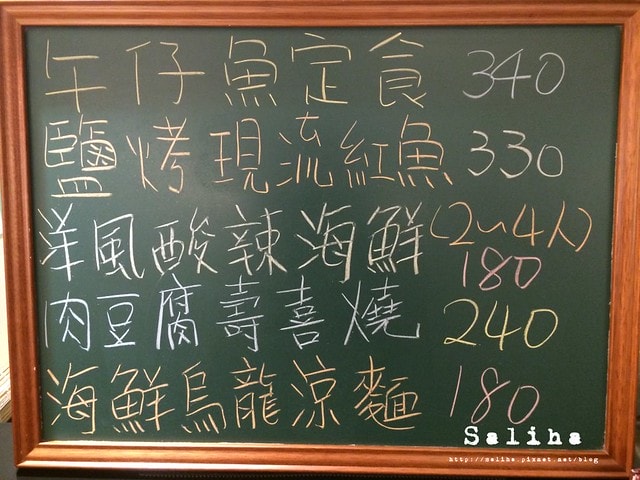 午仔魚定食 340
鹽烤現流紅魚 330
洋風酸辣海鮮(2~4人) 180
肉豆腐壽喜燒 240
海鮮烏龍涼麵 180
Saliha
http://saliha.pixnet.net/blog